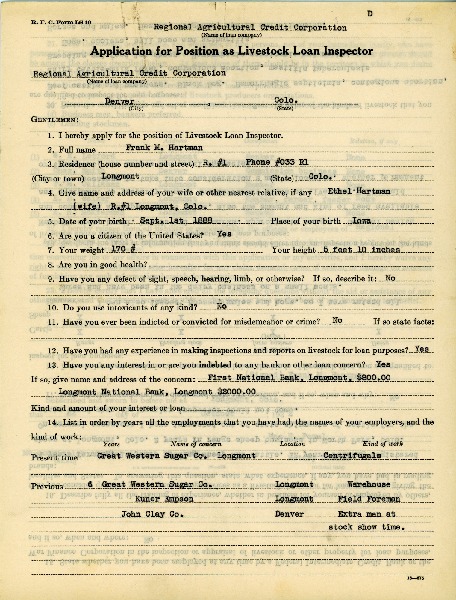 D
R. F. C. Form L&
Regional Agricultural Credit Corporation
(Name of loan company)
Application for Position as Livestock Loan Inspector
Regional Agricultural Credit Corporation
(Name of loan company)
Denver , Colo.
(City) (State)
GENTLEMEN:
1. I hereby apply for the position of Livestock Loan Inspector.
2. Full name Frank M. Hartman
3. Residence (house number and street) R. #1 Phone #033 R1
(City or town) Longmont (State) Colo.
4. Give name and address of your wife or other nearest relative, if any Ethel Hartman
(wife) R.#1 Longmont, Colo.
5. Date of your birth Sept. 1st 1888 Place of your birth Iowa
6. Are you a citizen of the United States? Yes
7. Your weight 170 # Your height 5 feet 10 inches
8. Are you in good health?
9. Have you any defect of sight, speech, hearing, limb, or otherwise? If so, describe it: No
10. Do you use intoxicants of any kind? No
11. Have you ever been indicted or convicted for misdemeanor or crime? No If so state facts:
12. Have you had any experience in making inspections and reports on livestock for loan purposes? Yes
13. Have you any interest in or are you indebted to any bank or other loan concern? Yes
If so, give name and address of the concern: First National Bank, Longmont, $800.00
Longmont National Bank, Longmont $2000.00
Kind and amount of your interest or loan
14. List in order by years all the employments that you have had, the names of your employers, and the
kind of work:
Years Name of concern Location Kind of work
Present time Great Western Sugar Co. Longmont Centrifugals
Previous 6 Great Western Sugar Co. Longmont Warehouse
Kuner Empson Longmont Field Foreman
John Clay Co. Denver Extra man at
stock show time.